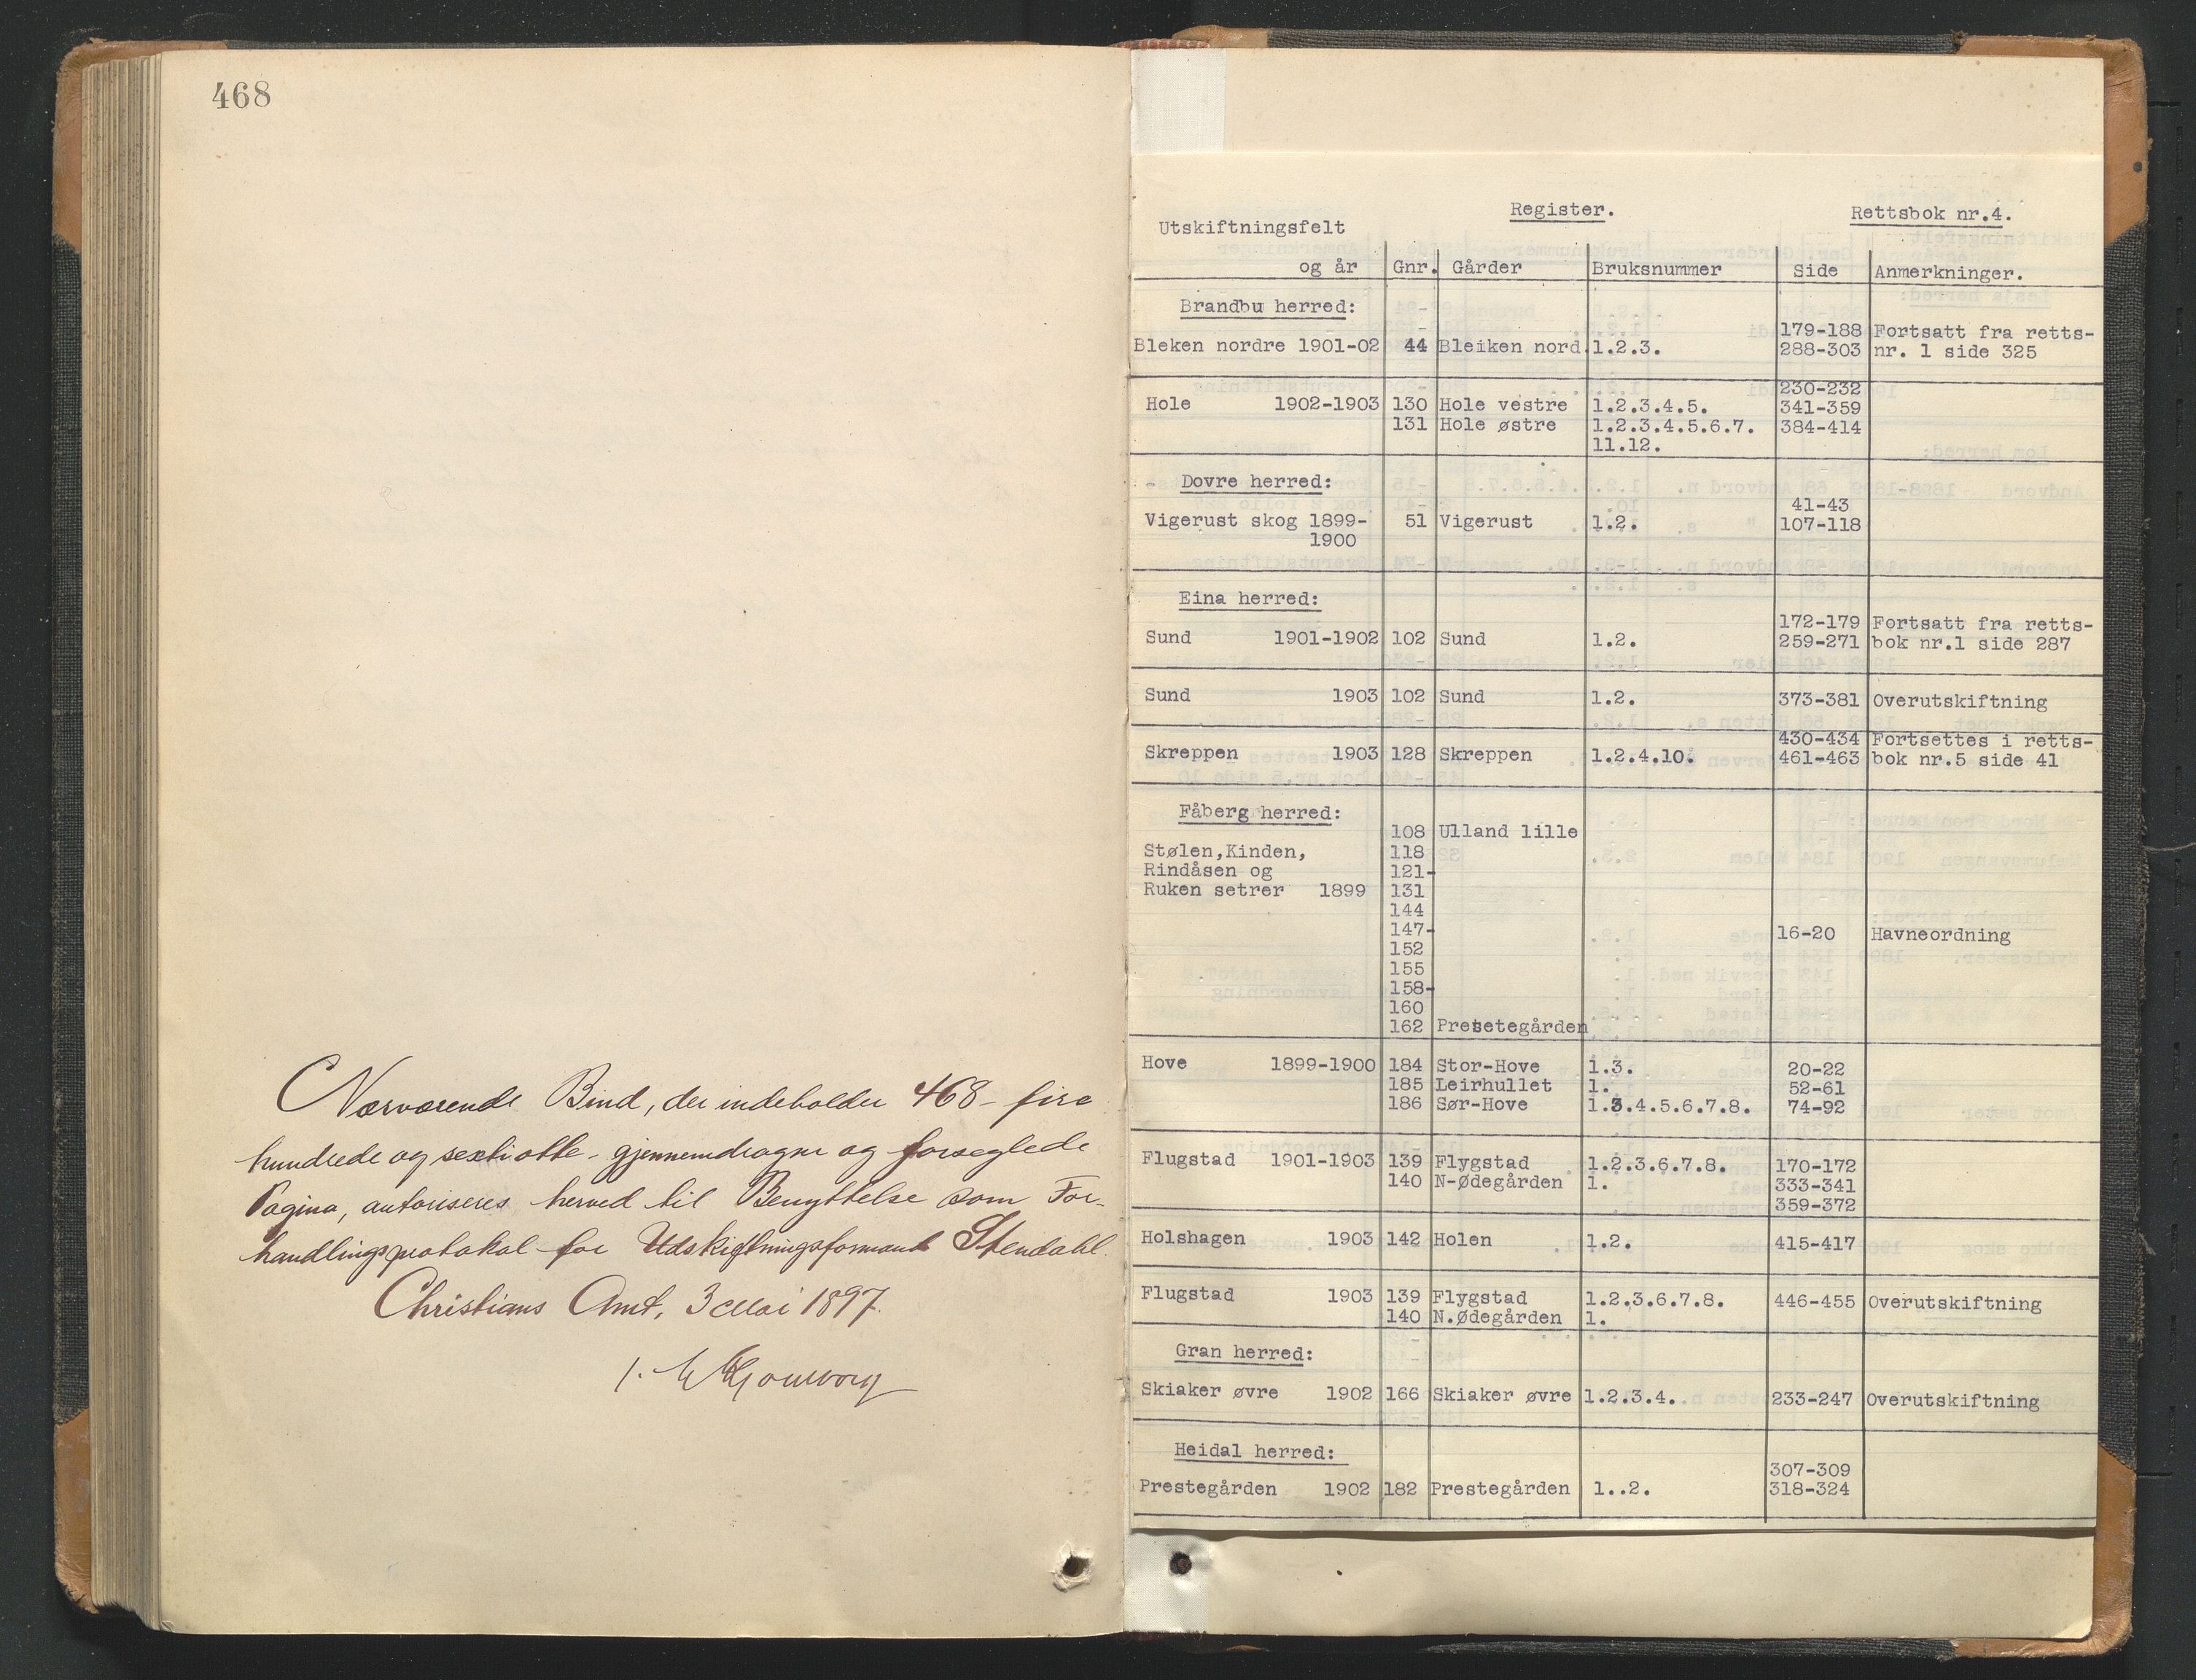 468
Nærværende Bind, der indeholder 468 - fire
hundrede og sexti otte - gjennemdragne og forseglede
Pagina, autoriseres herved til Benyttelse som For-
handlingsprotokol for Udskiftningsformand Stendahl.
Christians Amt, 3 Mai 1897.
Register. Rettsbok nr.4.
Utskiftningsfelt
og år Gnr. Gårder Bruksnummer Side Anmerkninger.
Brandbu herred:
179-188 Fortsatt fra retts-
Bleken nordre 1901-02 44 Bleiken nord. 1.2.3. 288-303 nr. 1 side 325
230-232
Hole 1902-1903 130 Hole vestre 1.2.3.4.5. 341-359
131 Hole østre 1.2.3.4.5.6.7. 384-414
11.12.
Dovre herred:
41-43
Vigerust skog 1899- 51 Vigerust 1.2. 107-118
1900
Eina herred:
172-179 Fortsatt fra retts-
Sund 1901-1902 102 Sund 1.2. 259-271 bok nr.1 side 287
Sund 1903 102 Sund 1.2. 373-381 Overutskiftning
430-434 Fortsettes i retts-
Skreppen 1903 128 Skreppen 1.2.4.10. 461-463 bok nr.5 side 41
Fåberg herred:
108 Ulland lille
Stølen,Kinden, 118
Rindåsen og 121-
Ruken setrer 1899 131
144
147- 16-20 Havneordning
152
155
158-
160
162 Presetegården
Hove 1899-1900 184 Stor-Hove 1.3. 20-22
185 Leirhullet 1. 52-61
186 Sør-Hove 1.3.4.5.6.7.8. 74-92
Flugstad 1901-1903 139 Flygstad 1.2.3.6.7.8. 170-172
140 N-Ødegården 1. 333-341
359-372
Holshagen 1903 142 Holen 1.2. 415-417
Flugstad 1903 139 Flygstad 1.2.3.6.7.8. 446-455 Overutskiftning
140 N.Ødegården 1.
Gran herred:
Skiaker øvre 1902 166 Skiaker øvre 1.2.3.4. 233-247 Overutskiftning
Heidal herred:
307-309
Prestegården 1902 182 Prestegården 1..2. 318-324